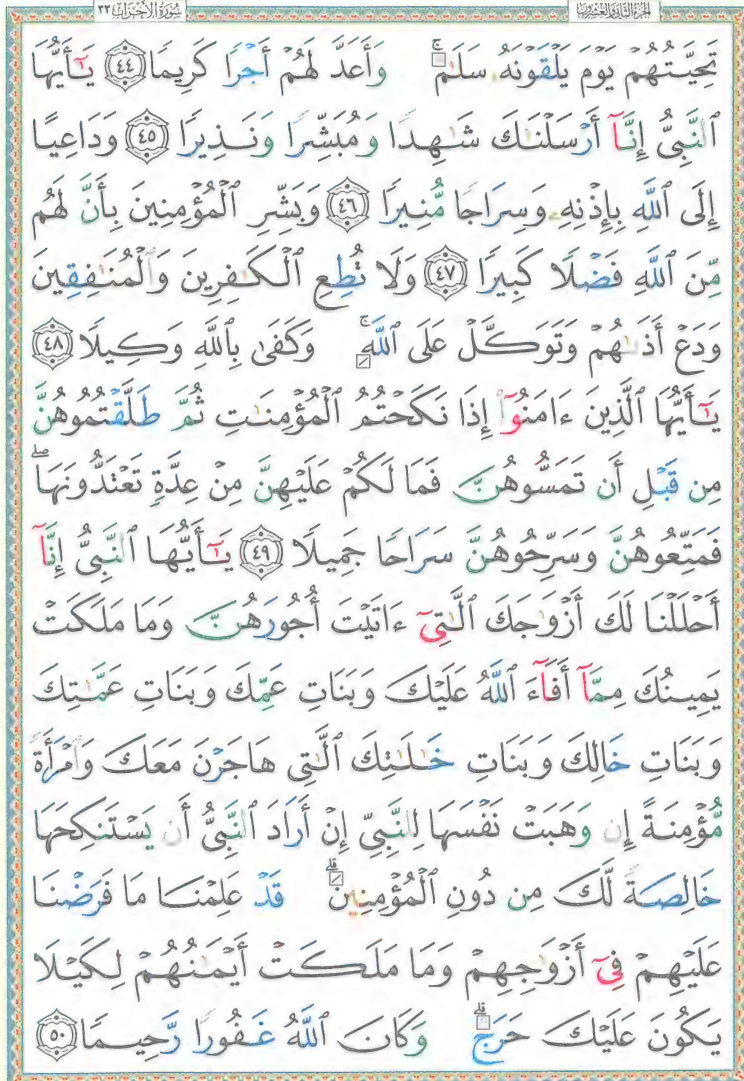 سُورَةُ الأَحْزَابِ ٣٣ الجزء الثاني والعشرون
تَحِيَّتُهُمْ يَوْمَ يَلْقَوْنَهُۥ سَلَٰمٌ ۚ وَأَعَدَّ لَهُمْ أَجْرًا كَرِيمًا ﴿٤٤﴾ يَٰٓأَيُّهَا
ٱلنَّبِىُّ إِنَّآ أَرْسَلْنَٰكَ شَٰهِدًا وَمُبَشِّرًا وَنَذِيرًا ﴿٤٥﴾ وَدَاعِيًا
إِلَى ٱللَّهِ بِإِذْنِهِۦ وَسِرَاجًا مُّنِيرًا ﴿٤٦﴾ وَبَشِّرِ ٱلْمُؤْمِنِينَ بِأَنَّ لَهُم
مِّنَ ٱللَّهِ فَضْلًا كَبِيرًا ﴿٤٧﴾ وَلَا تُطِعِ ٱلْكَٰفِرِينَ وَٱلْمُنَٰفِقِينَ
وَدَعْ أَذَىٰهُمْ وَتَوَكَّلْ عَلَى ٱللَّهِ ۚ وَكَفَىٰ بِٱللَّهِ وَكِيلًا ﴿٤٨﴾
يَٰٓأَيُّهَا ٱلَّذِينَ ءَامَنُوٓا۟ إِذَا نَكَحْتُمُ ٱلْمُؤْمِنَٰتِ ثُمَّ طَلَّقْتُمُوهُنَّ
مِن قَبْلِ أَن تَمَسُّوهُنَّ فَمَا لَكُمْ عَلَيْهِنَّ مِنْ عِدَّةٍ تَعْتَدُّونَهَا ۖ
فَمَتِّعُوهُنَّ وَسَرِّحُوهُنَّ سَرَاحًا جَمِيلًا ﴿٤٩﴾ يَٰٓأَيُّهَا ٱلنَّبِىُّ إِنَّآ
أَحْلَلْنَا لَكَ أَزْوَٰجَكَ ٱلَّٰتِىٓ ءَاتَيْتَ أُجُورَهُنَّ وَمَا مَلَكَتْ
يَمِينُكَ مِمَّآ أَفَآءَ ٱللَّهُ عَلَيْكَ وَبَنَاتِ عَمِّكَ وَبَنَاتِ عَمَّٰتِكَ
وَبَنَاتِ خَالِكَ وَبَنَاتِ خَٰلَٰتِكَ ٱلَّٰتِى هَاجَرْنَ مَعَكَ وَٱمْرَأَةً
مُّؤْمِنَةً إِن وَهَبَتْ نَفْسَهَا لِلنَّبِىِّ إِنْ أَرَادَ ٱلنَّبِىُّ أَن يَسْتَنكِحَهَا
خَالِصَةً لَّكَ مِن دُونِ ٱلْمُؤْمِنِينَ ۗ قَدْ عَلِمْنَا مَا فَرَضْنَا
عَلَيْهِمْ فِىٓ أَزْوَٰجِهِمْ وَمَا مَلَكَتْ أَيْمَٰنُهُمْ لِكَيْلَا
يَكُونَ عَلَيْكَ حَرَجٌ ۗ وَكَانَ ٱللَّهُ غَفُورًا رَّحِيمًا ﴿٥٠﴾